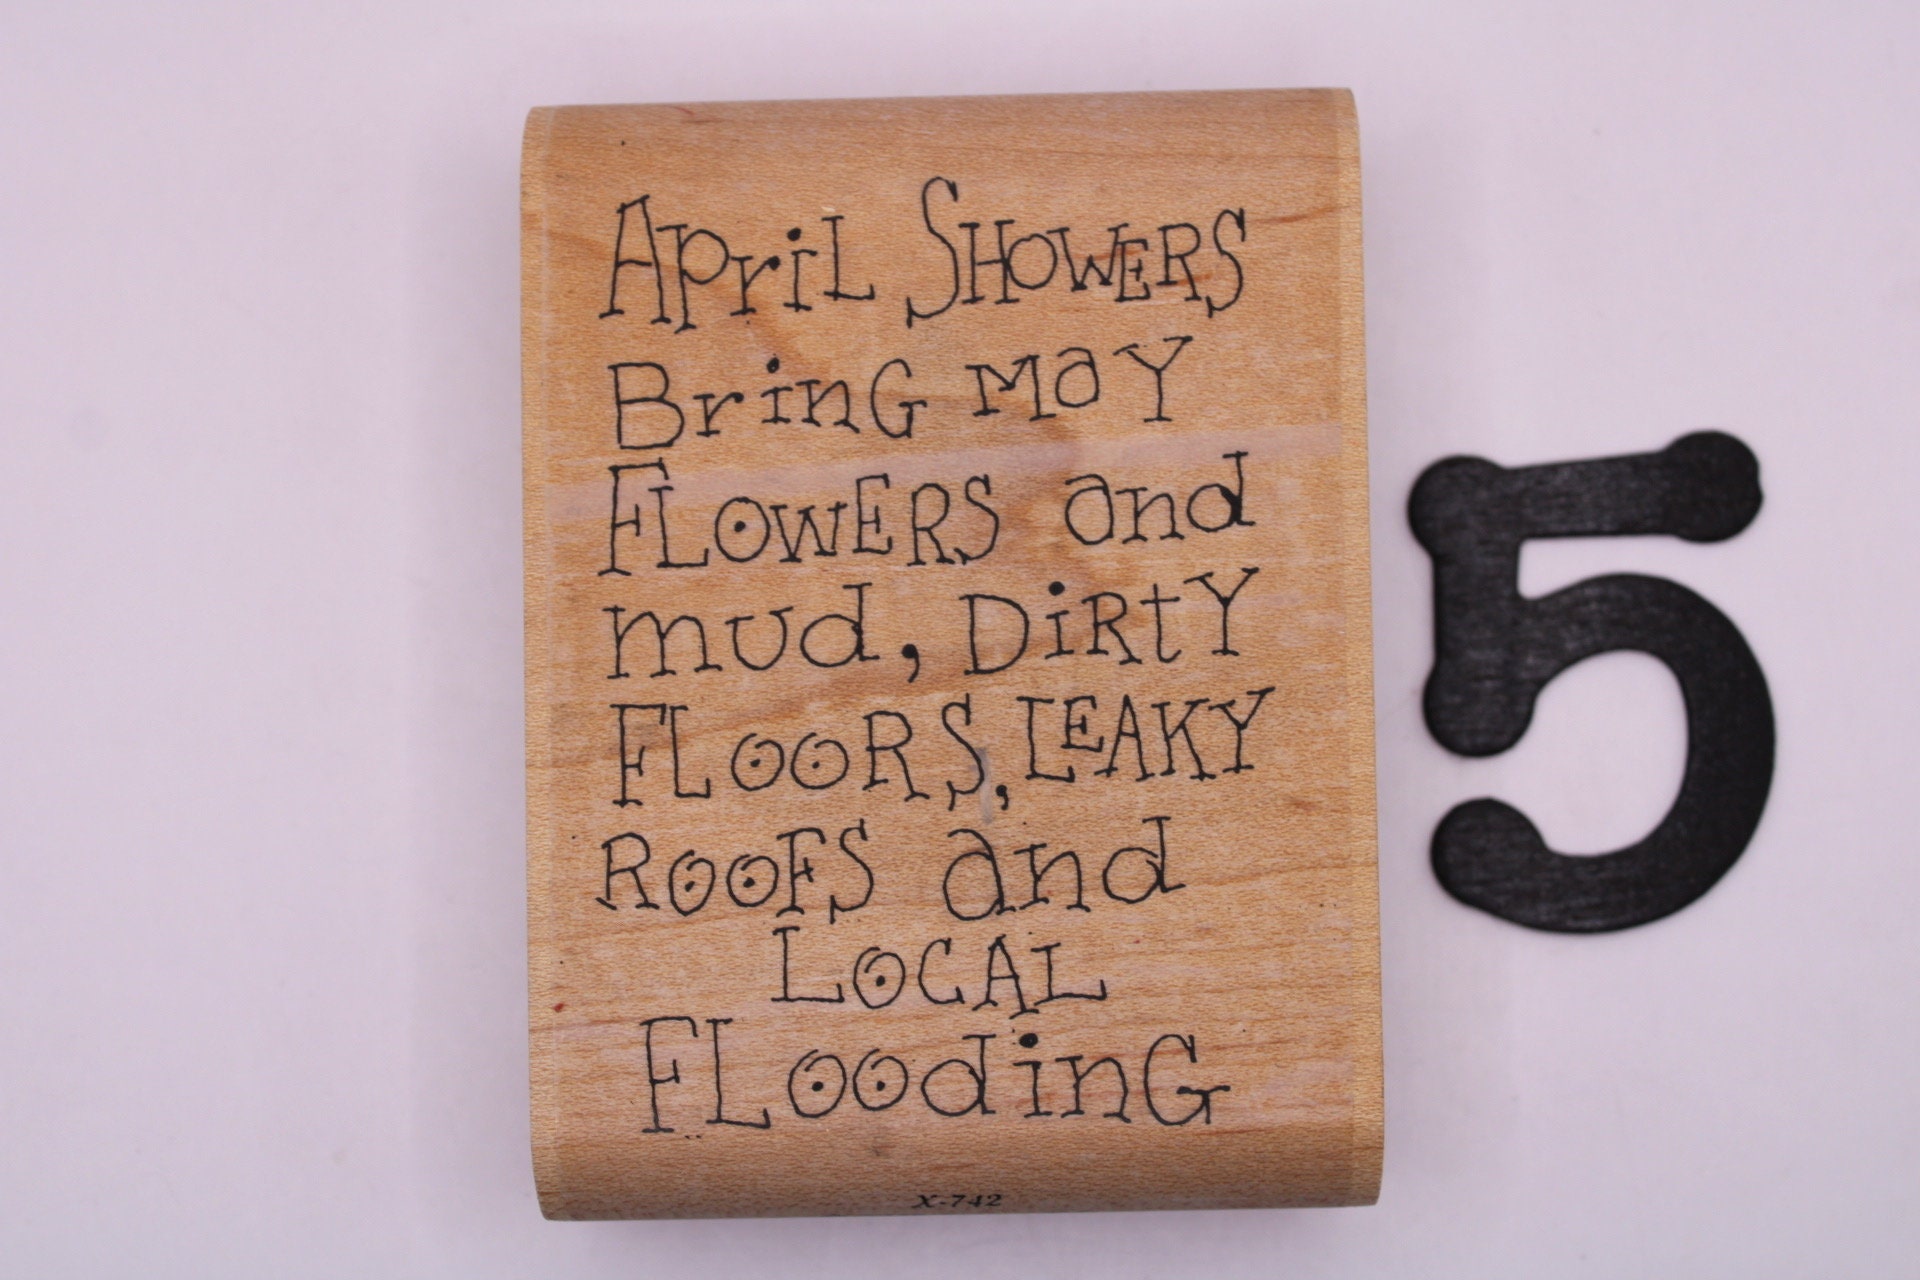 April SHOWERS
BrinG May
FLOWERS and
mud, DiRtY
FLOORS, LEAKY
ROOFS and
LOCAL
FLoodinG
X-742
5